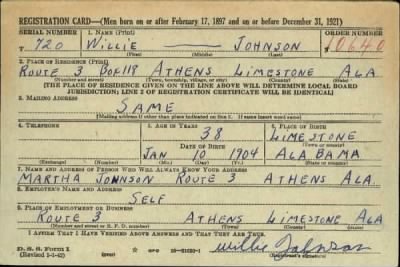 REGISTRATION CARD—(Men born on or after February 17, 1897 and on or before December 31, 1921)
SERIAL NUMBER 1. NAME (Print) ORDER NUMBER
T 720 WILLIE — JOHNSON 10640
(First) (Middle) (Last)
2. PLACE OF RESIDENCE (Print)
ROUTE 3 BOX 118 ATHENS LIMESTONE ALA
(Number and street) (Town, township, village, or city) (County) (State)
[THE PLACE OF RESIDENCE GIVEN ON THE LINE ABOVE WILL DETERMINE LOCAL BOARD
JURISDICTION; LINE 2 OF REGISTRATION CERTIFICATE WILL BE IDENTICAL]
3. MAILING ADDRESS
SAME
[Mailing address if other than place indicated on line 2. If same insert word same]
4. TELEPHONE 5. AGE IN YEARS 6. PLACE OF BIRTH
38 LIMESTONE
DATE OF BIRTH (Town or county)
JAN 10 1904 ALABAMA
(Exchange) (Number) (Mo.) (Day) (Yr.) (State or country)
7. NAME AND ADDRESS OF PERSON WHO WILL ALWAYS KNOW YOUR ADDRESS
MARTHA JOHNSON ROUTE 3 ATHENS ALA.
8. EMPLOYER'S NAME AND ADDRESS
SELF
9. PLACE OF EMPLOYMENT OR BUSINESS
ROUTE 3 ATHENS LIMESTONE ALA
(Number and street or R. F. D. number) (Town) (County) (State)
I AFFIRM THAT I HAVE VERIFIED ABOVE ANSWERS AND THAT THEY ARE TRUE.
D. S. S. FORM 1
(Revised 1-1-42) GPO Willie Johnson